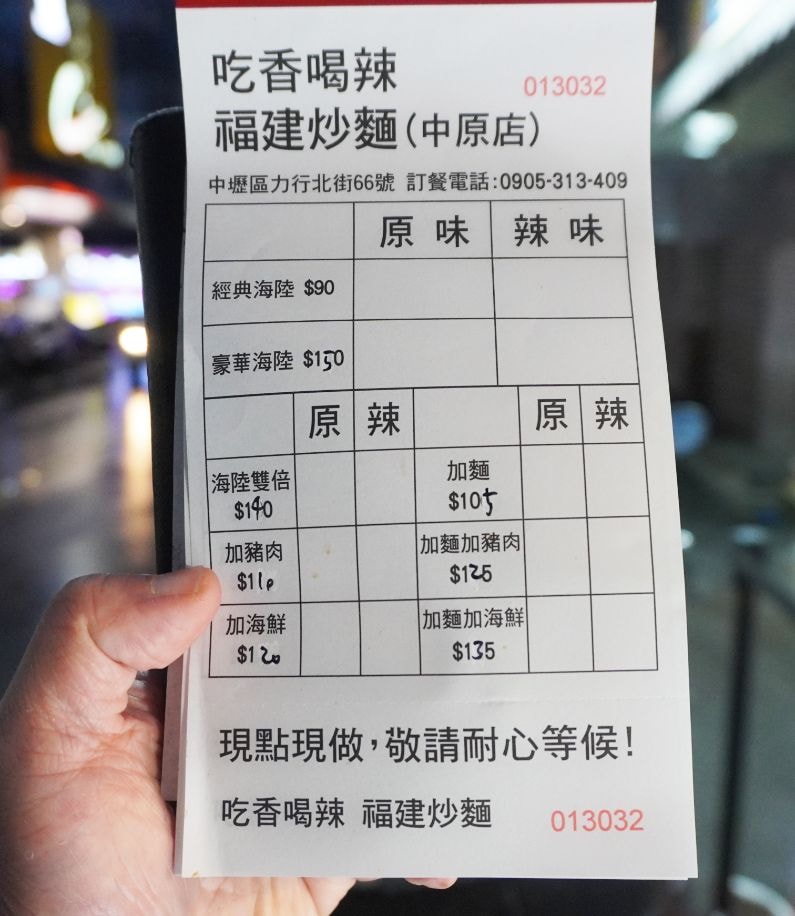 吃香喝辣
013032
福建炒麵(中原店)
中壢區力行北街66號 訂餐電話:0905-313-409
原 味 辣 味
經典海陸 $90
豪華海陸 $150
原 辣 原 辣
海陸雙倍 加麵
$140 $105
加豬肉 加麵加豬肉
$110 $125
加海鮮 加麵加海鮮
$120 $135
現點現做,敬請耐心等候!
吃香喝辣 福建炒麵 013032